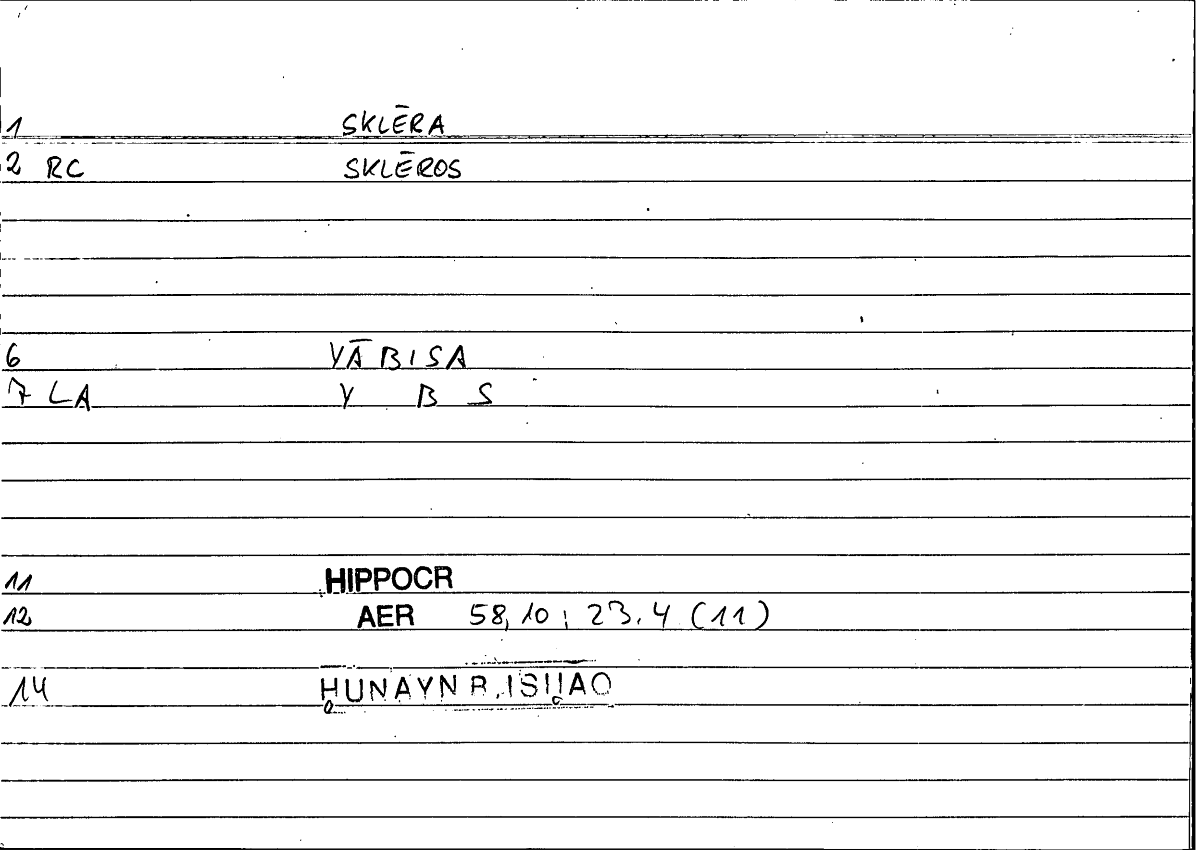 1 SKLĒRA
2 RC SKLĒROS
6 YĀBISA
7 LA Y B S
11 HIPPOCR
12 AER 58,10; 23.4 (11)
14 ḤUNAYN B. ISḤAQ